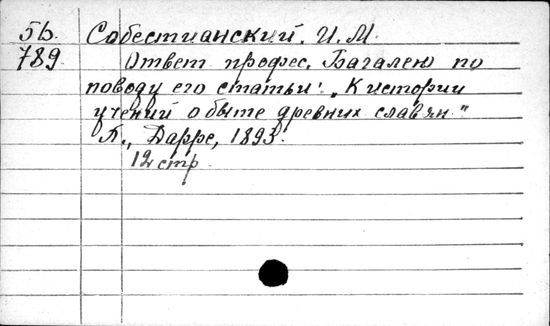 5б. Собестианский. И. М.
789 Ответ профес. Багалею по
поводу его статьи: „К истории
учений о быте древних славян."
Х., Дарре, 1893.
12 стр.